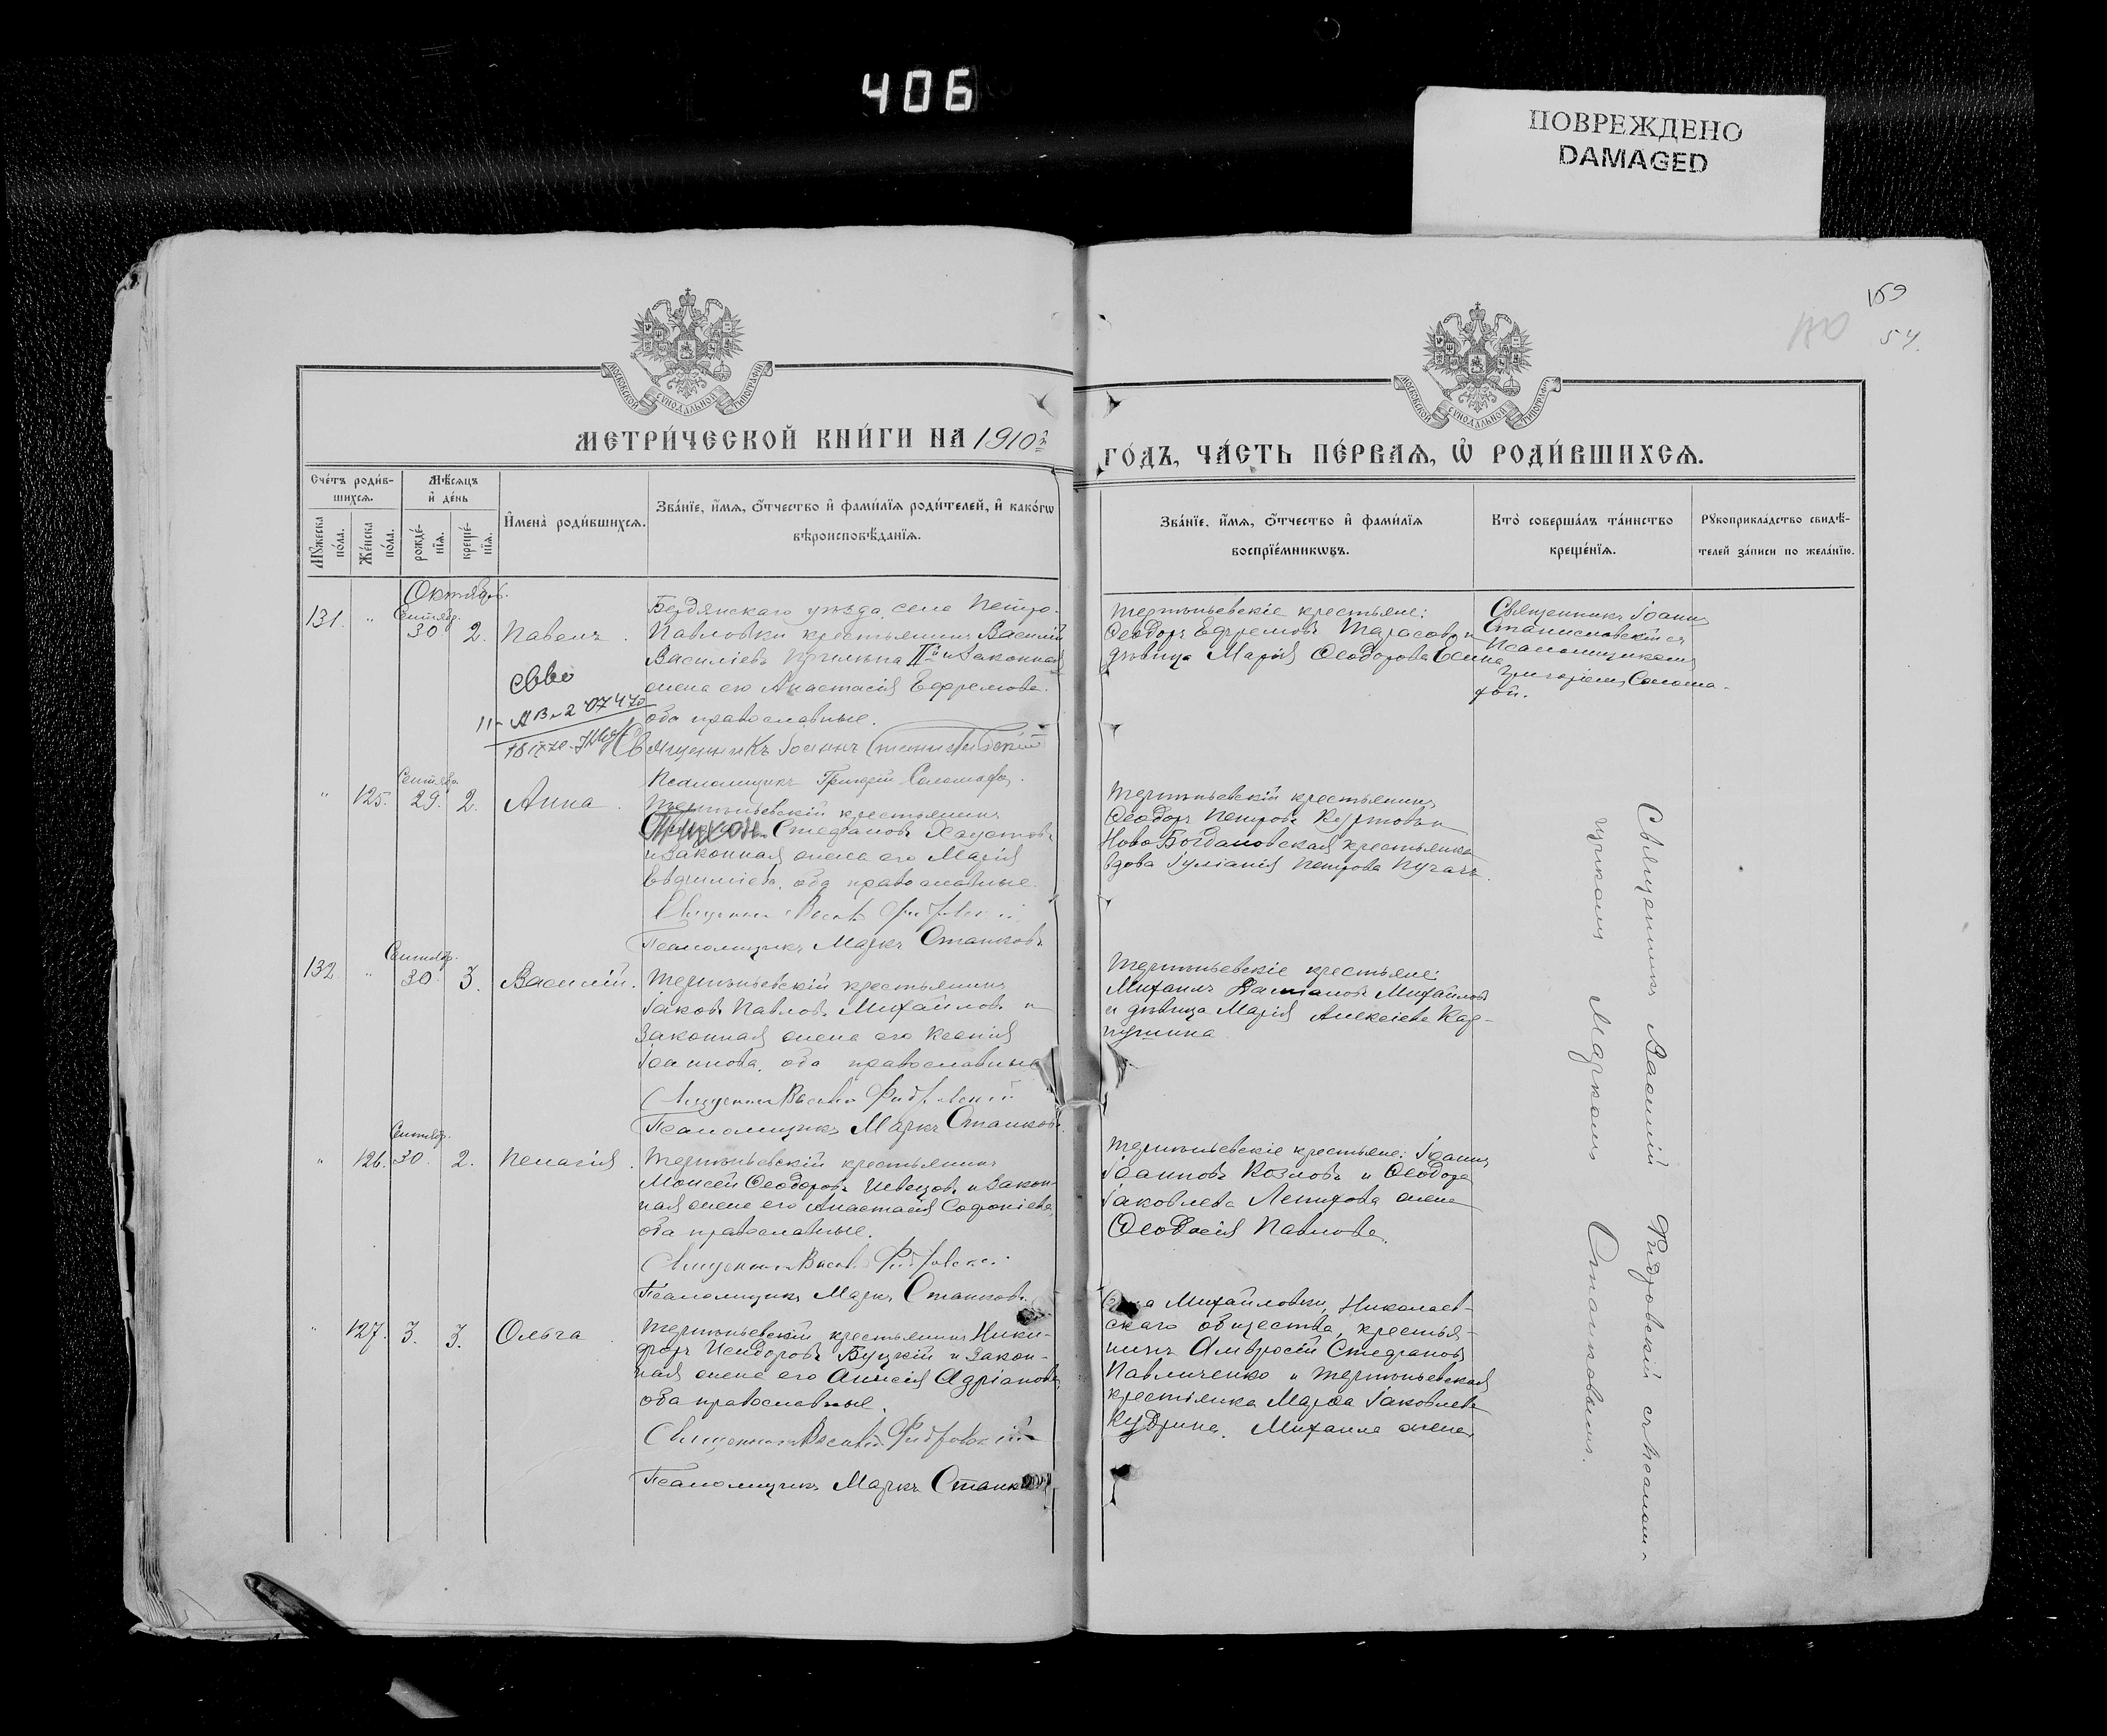 406
ПОВРЕЖДЕНО
DAMAGED
159
54.
МОСКОВСКОЙ СѴНОДАЛЬНОЙ ТИПОГРАФІИ
МОСКОВСКОЙ СѴНОДАЛЬНОЙ ТИПОГРАФІИ
МЕТРИ́ЧЕСКОЙ КНИ́ГИ НА 1910й
ГО́ДЪ, ЧА́СТЬ ПЕ́РВАѦ, Ѽ РОДИ́ВШИХСѦ.
Сче́тъ роди́в-
шихсѧ.
Мѣ́сѧцъ
и҆ де́нь
Мꙋ́жеска
по́ла.
Же́нска
по́ла.
рожде́-
нїѧ.
креще́-
нїѧ.
И҆мена̀ роди́вшихсѧ.
Зва́нїе, и҆́мѧ, ѻ҆́тчество и҆ фами́лїѧ роди́телей, и҆ како́гѡ
вѣроисповѣ́данїѧ.
Зва́нїе, и҆́мѧ, ѻ҆́тчество и҆ фами́лїѧ
воспрїе́мникѡвъ.
Кто̀ соверша́лъ та́инство
креще́нїѧ.
Рꙋкоприкла́дство свидѣ́-
телей за́писи по жела́нїю.
Октябрь.
131. " Сентяб. 30 2. Павелъ.
Бердянскаго уѣзда, села Петро-
Павловки крестьянинъ Василій
Василіевъ II й и законная
жена его Анастасія Ефремова.
оба православные.
Священникъ Іоаннъ Станиславскій
Псаломщикъ Григорій Соломаха.
Терпѣньевскіе крестьяне:
Ѳеодоръ Ефремовъ Тарасовъ и
дѣвица Марія Ѳеодорова
Священникъ Іоаннъ
Станиславскій съ
Псаломщикомъ
Григоріемъ Солома-
хой.
" 125. Сентяб. 29. 2. Анна.
Терпѣньевскій крестьянинъ
Стефановъ Хаустовъ
и законная жена его Марія
Евѳиміева, оба православные.
Священникъ Василій Фидровскій
Псаломщикъ Маркъ Станковъ
Терпѣньевскій крестьянинъ
Ѳеодоръ Петровъ Куртовъ и
Ново Богдановская крестьянка
вдова Іуліанія Петрова Пугачъ.
132 " Сентябр. 30. 3. Василій.
Терпѣньевскій крестьянинъ
Іаковъ Павловъ Михайловъ и
законная жена его Ксенія
Іоаннова, оба православные
Священникъ Василій Фидровскій
Псаломщикъ Маркъ Станковъ.
Терпѣньевскіе крестьяне:
Михаилъ Даміановъ Михайловъ
и дѣвица Марія Алексіева Кар-
пушина
" 126. Сентябр. 30. 2. Пелагія.
Терпѣньевскій крестьянинъ
Моисей Ѳеодоровъ Швецовъ и закон-
ная жена его Анастасія Софоніева,
оба православные.
Священникъ Василій Фидровскій
Псаломщикъ Маркъ Станковъ.
Терпѣньевскіе крестьяне: Іоаннъ
Іоанновъ Козловъ и Ѳеодора
Іаковлева жена
Ѳеодосія Павлова.
" 127. 3. 3. Ольга
Терпѣньевскій крестьянинъ Ники-
форъ Исидоровъ Буцкій и закон-
ная жена его Анисія Адріанова,
оба православные.
Священникъ Василій Фидровскій
Псаломщикъ Маркъ Станковъ
Михайловки, Николаев-
скаго общества, крестья-
нинъ Амвросій Стефановъ
Павличенко и Терпѣньевская
крестьянка Марѳа Іаковлева
Кудрина, Михаила жена
Священникъ Василій Фидровскій съ Псалом-
щикомъ Маркомъ Станковымъ.